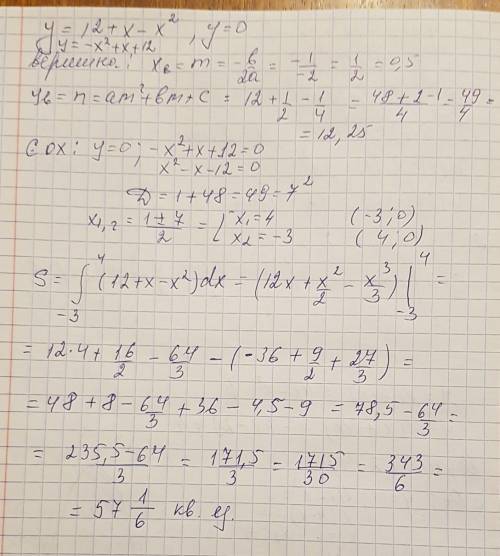 y = 12 + x - x², y = 0
y = -x² + x + 12
вершина: x₆ = m = -b/2a = -1/-2 = 1/2 = 0,5
y₆ = n = am² + bm + c = 12 + 1/2 - 1/4 = 48+2-1/4 = 49/4 =
= 12,25
С OX: y = 0; -x² + x + 12 = 0
x² - x - 12 = 0
D = 1 + 48 = 49 = 7²
x₁,₂ = 1±7/2 = [ x₁ = 4 (-3; 0)
x₂ = -3 (4; 0)
S = ∫₋₃⁴ (12 + x - x²)dx = (12x + x²/2 - x³/3)|₋₃⁴ =
= 12·4 + 16/2 - 64/3 - (-36 + 9/2 + 27/3) =
= 48 + 8 - 64/3 + 36 - 4,5 - 9 = 78,5 - 64/3 =
= 235,5-64/3 = 171,5/3 = 1715/30 = 343/6 =
= 57 1/6 кв. ед.